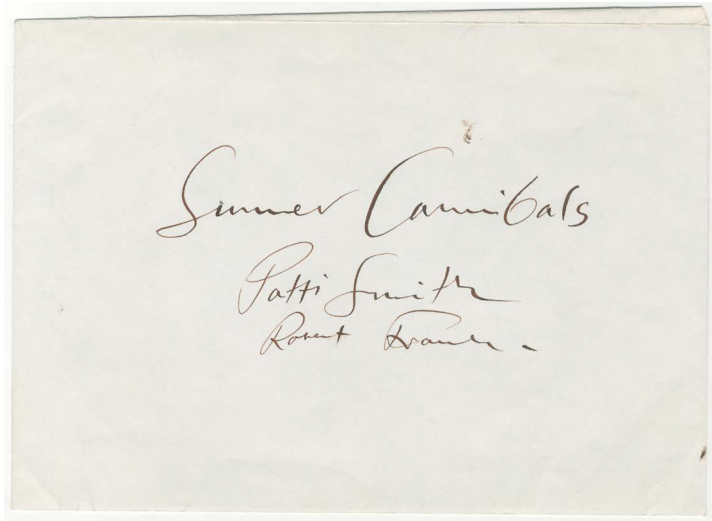 Summer Cannibals
Patti Smith
Robert Frank -